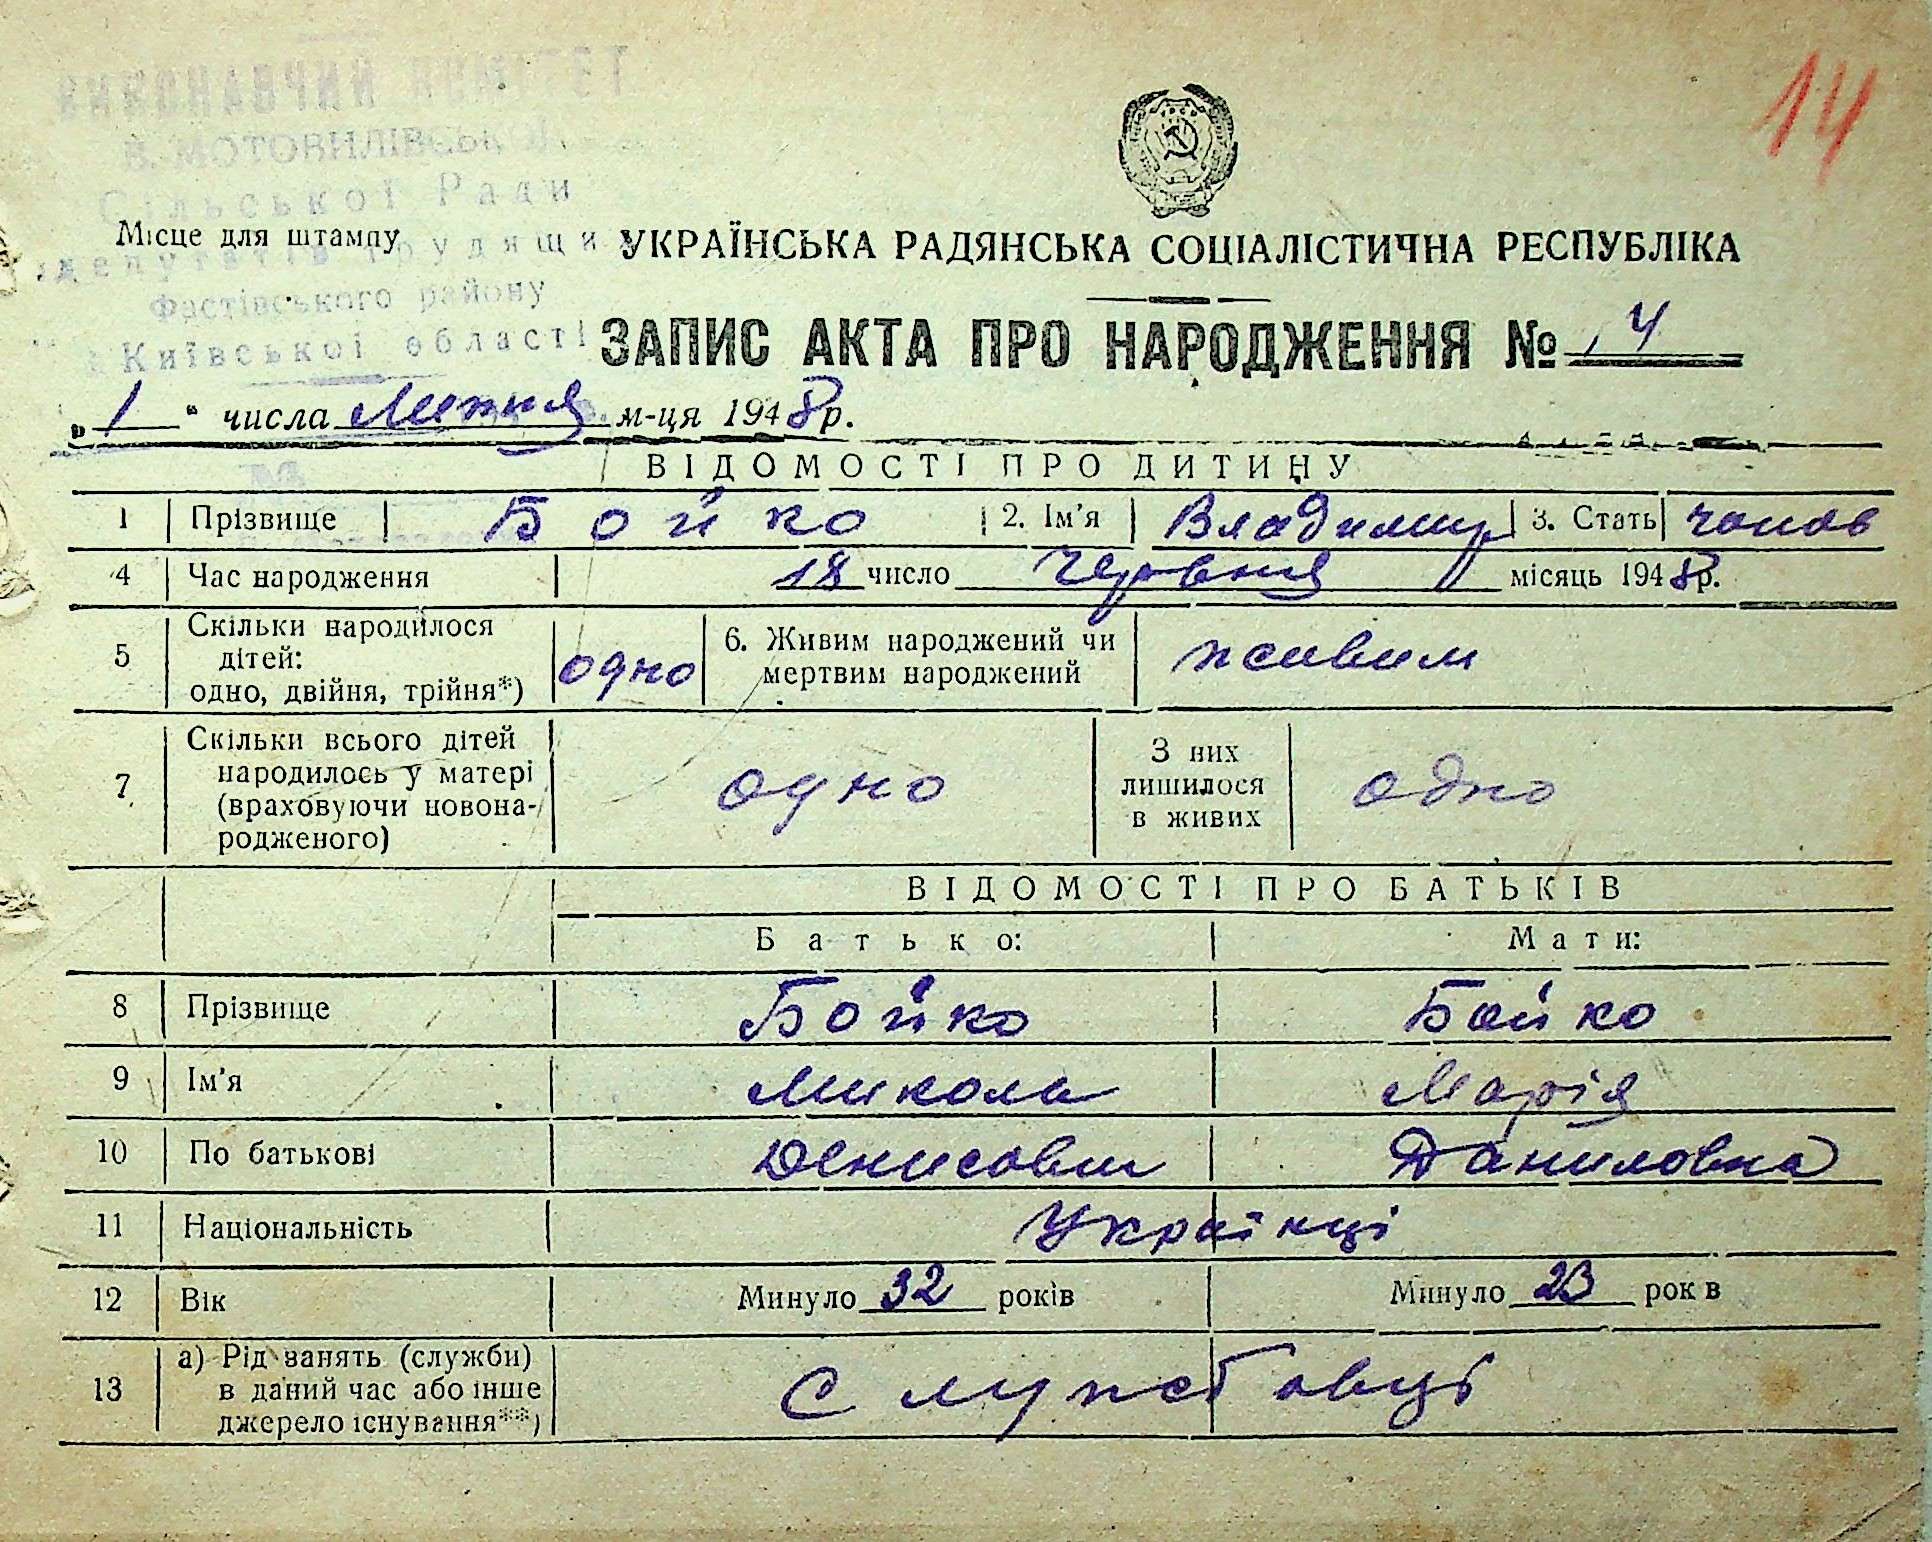 14
В. МОТОВИЛІВСЬК
Сільської Ради
депутатів трудящи
Фастівського району
Київської області
Місце для штампу
УКРАЇНСЬКА РАДЯНСЬКА СОЦІАЛІСТИЧНА РЕСПУБЛІКА
ЗАПИС АКТА ПРО НАРОДЖЕННЯ №
„1“ числа Липня м-ця 1948 р.
ВІДОМОСТІ ПРО ДИТИНУ
1 Прізвище Бойко 2. Ім'я Владимир 3. Стать чолов
4 Час народження 18 число Червня місяць 1948 р.
5 Скільки народилося дітей: одно, двійня, трійня*) одно 6. Живим народжений чи мертвим народжений живим
7 Скільки всього дітей народилось у матері (враховуючи новонародженого) одно З них лишилося в живих одно
ВІДОМОСТІ ПРО БАТЬКІВ
Батько: Мати:
8 Прізвище Бойко Бойко
9 Ім'я Микола Марія
10 По батькові Денисович Даниловна
11 Національність Українці
12 Вік Минуло 32 років Минуло 23 рок в
13 а) Рід занять (служби) в даний час або інше джерело існування**) Службовці